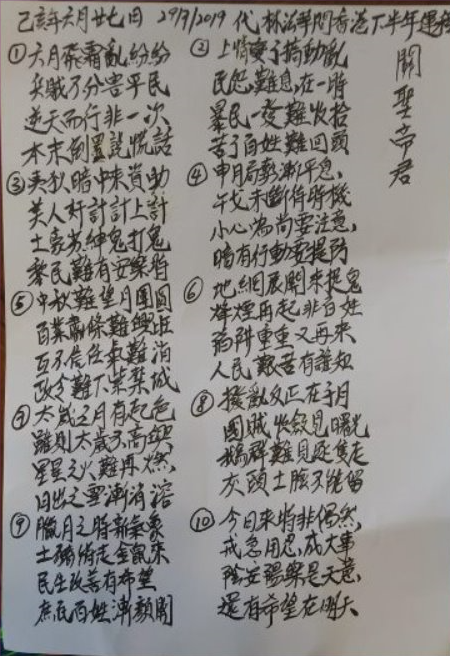 己亥年六月廿七日 29/7/2019 代林法華問香港下半年運程
關聖帝君
① 六月飛霜亂紛紛
兵賊不分害平民
逆天而行非一次
本末倒置說慌話
② 上情變了搞動亂
民怨難息在一時
暴民一發難收拾
苦了百姓難回頭
③ 夷狄暗中來資助
美人奸計計上計
土豪劣紳鬼打鬼
黎民難有安樂時
④ 申月局勢漸平息
干戈未斷待時機
小心為尚要注意
暗有行動要提防
⑤ 中秋難望月團圓
百業蕭條難興旺
互不信任氣難消
政令難下紫禁城
⑥ 地網展開來捉鬼
烽煙再起非百姓
陷阱重重又再來
人民艱苦有誰知
⑦ 太歲之月有起色
雖則太歲不高興
星星之火難再燃
日出之雪漸消溶
⑧ 撥亂反正在子月
國賊收斂見曙光
鵝群難見延隻走
灰頭土臉不能留
⑨ 臘月之時新氣象
土豬將走金鼠來
民生改善有希望
庶民百姓漸顏開
⑩ 今日來時非偶然
戒急用忍成大事
陰安陽樂是天意
還有希望在明天